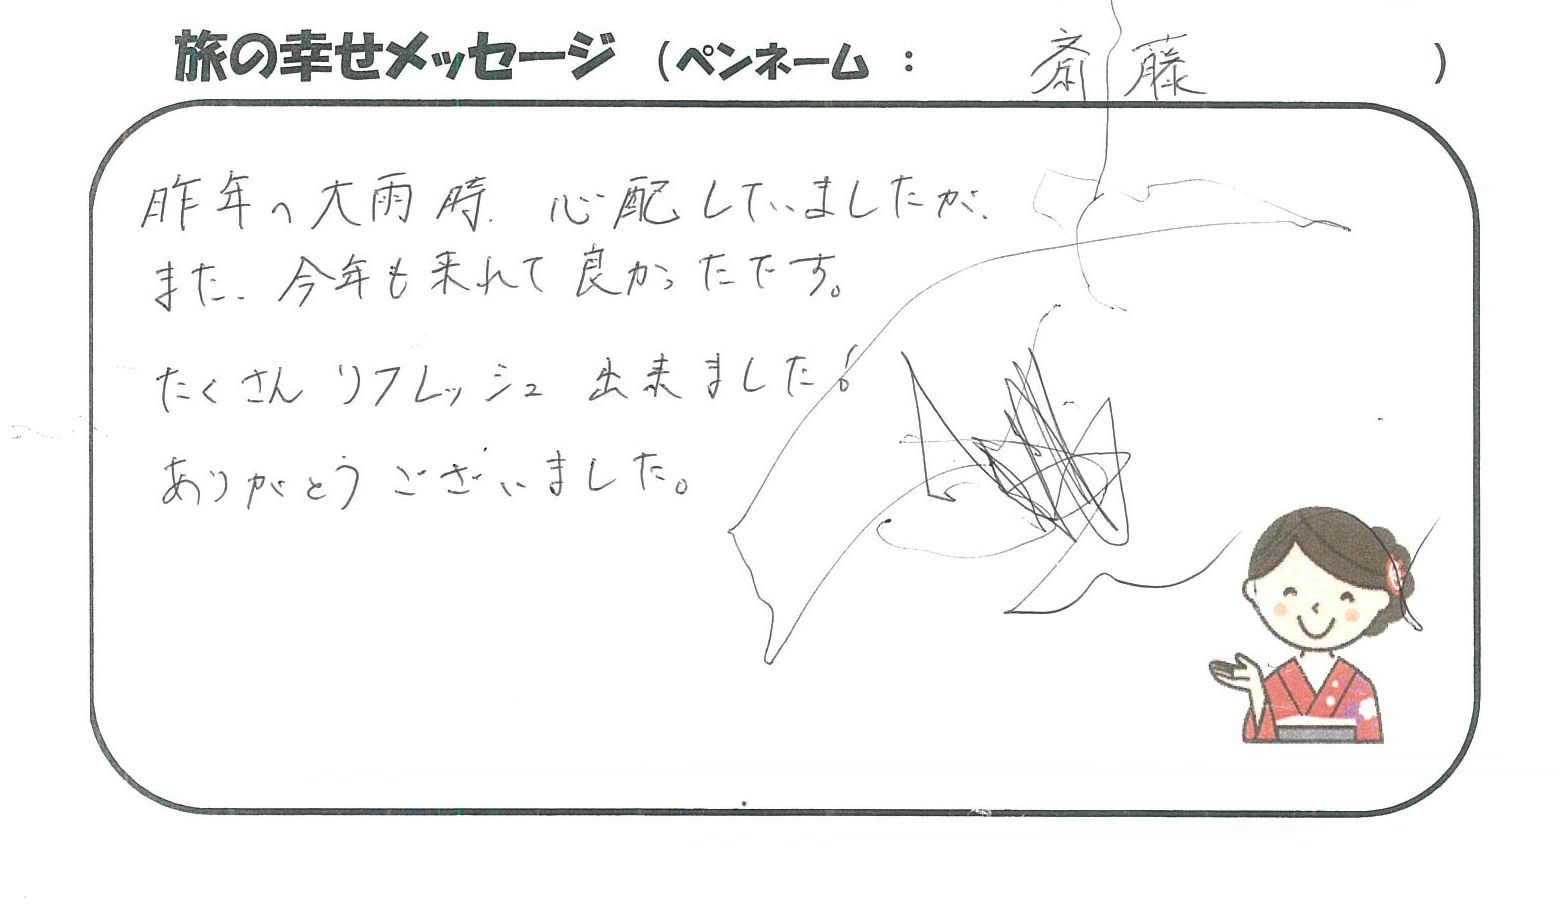 旅の幸せメッセージ (ペンネーム : 斎藤 )
昨年の大雨時、心配していましたが、
また、今年も来れて良かったです。
たくさんリフレッシュ出来ました!
ありがとうございました。